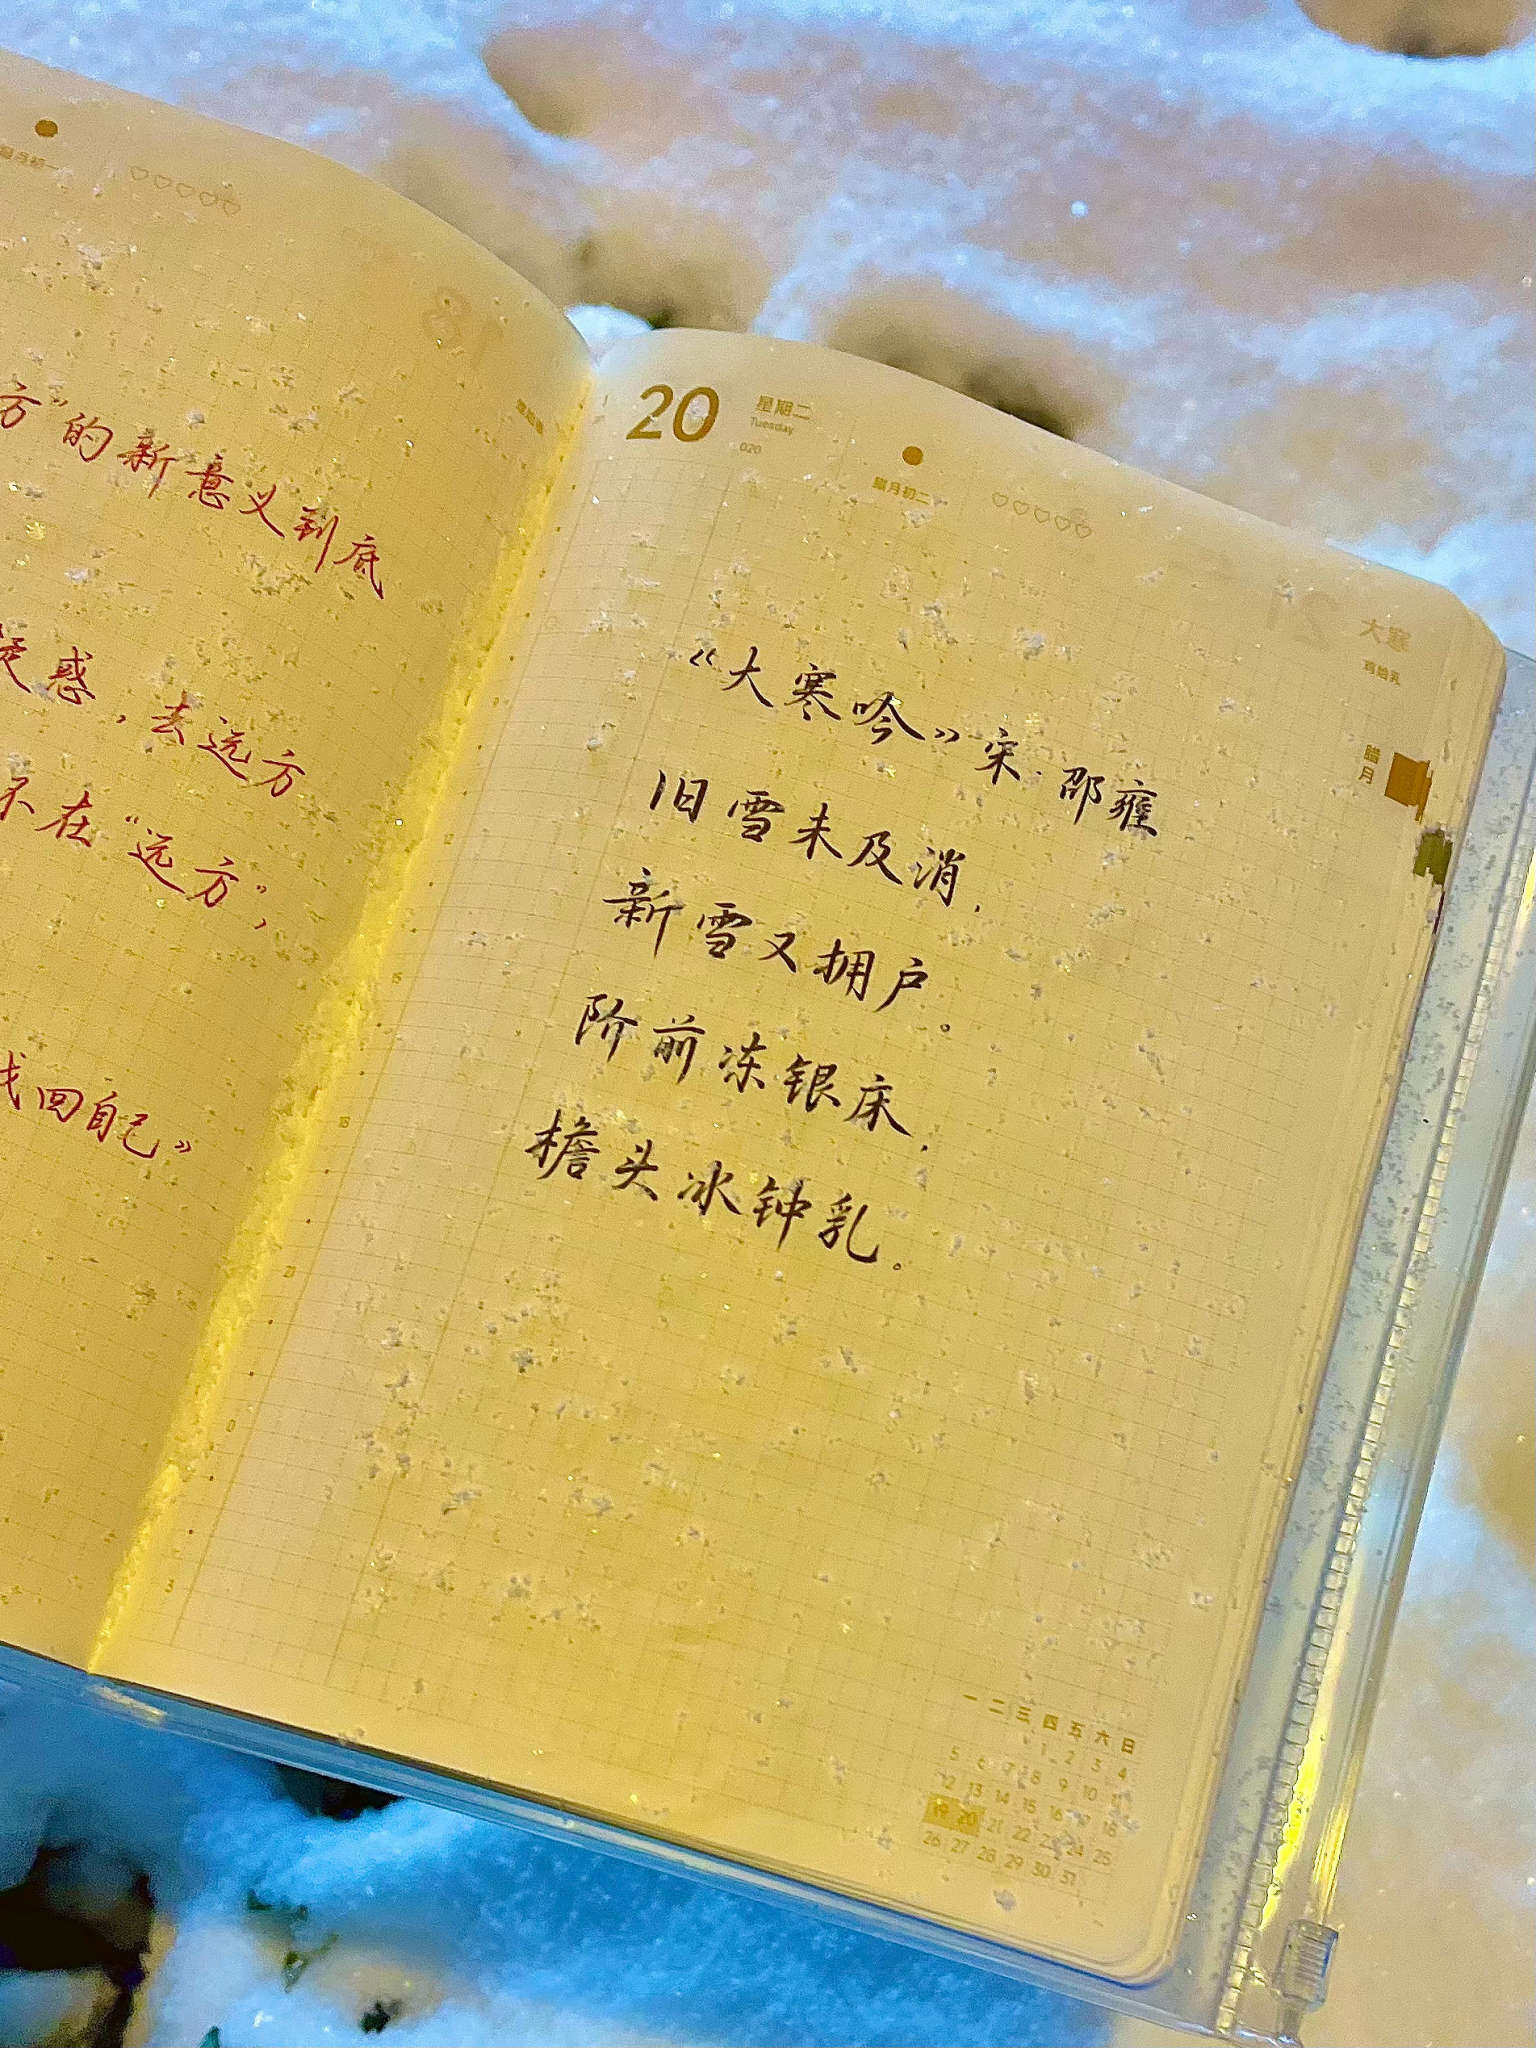 腊月初一
方”的新意义到底
疑惑，去远方
不在“远方”，
找回自己》
20
星期二
Tuesday
020
腊月初二
大寒
鸡始乳
腊月
《大寒吟》宋·邵雍
旧雪未及消，
新雪又拥户。
阶前冻银床，
檐头冰钟乳。
一 二 三 四 五 六 日
1 2 3 4
5 6 7 8 9 10 11
12 13 14 15 16 17 18
19 20 21 22 23 24 25
26 27 28 29 30 31